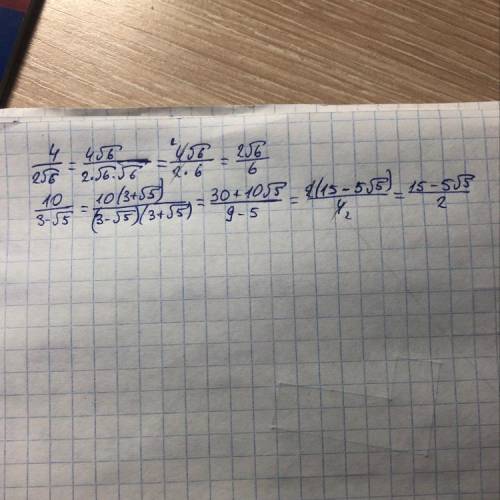 4/2√6 = 4√6/2·√6·√6 = 4√6/2·6 = 2√6/6
10/3-√5 = 10(3+√5)/(3-√5)(3+√5) = 30+10√5/9-5 = 2(15-5√5)/4₂ = 15-5√5/2